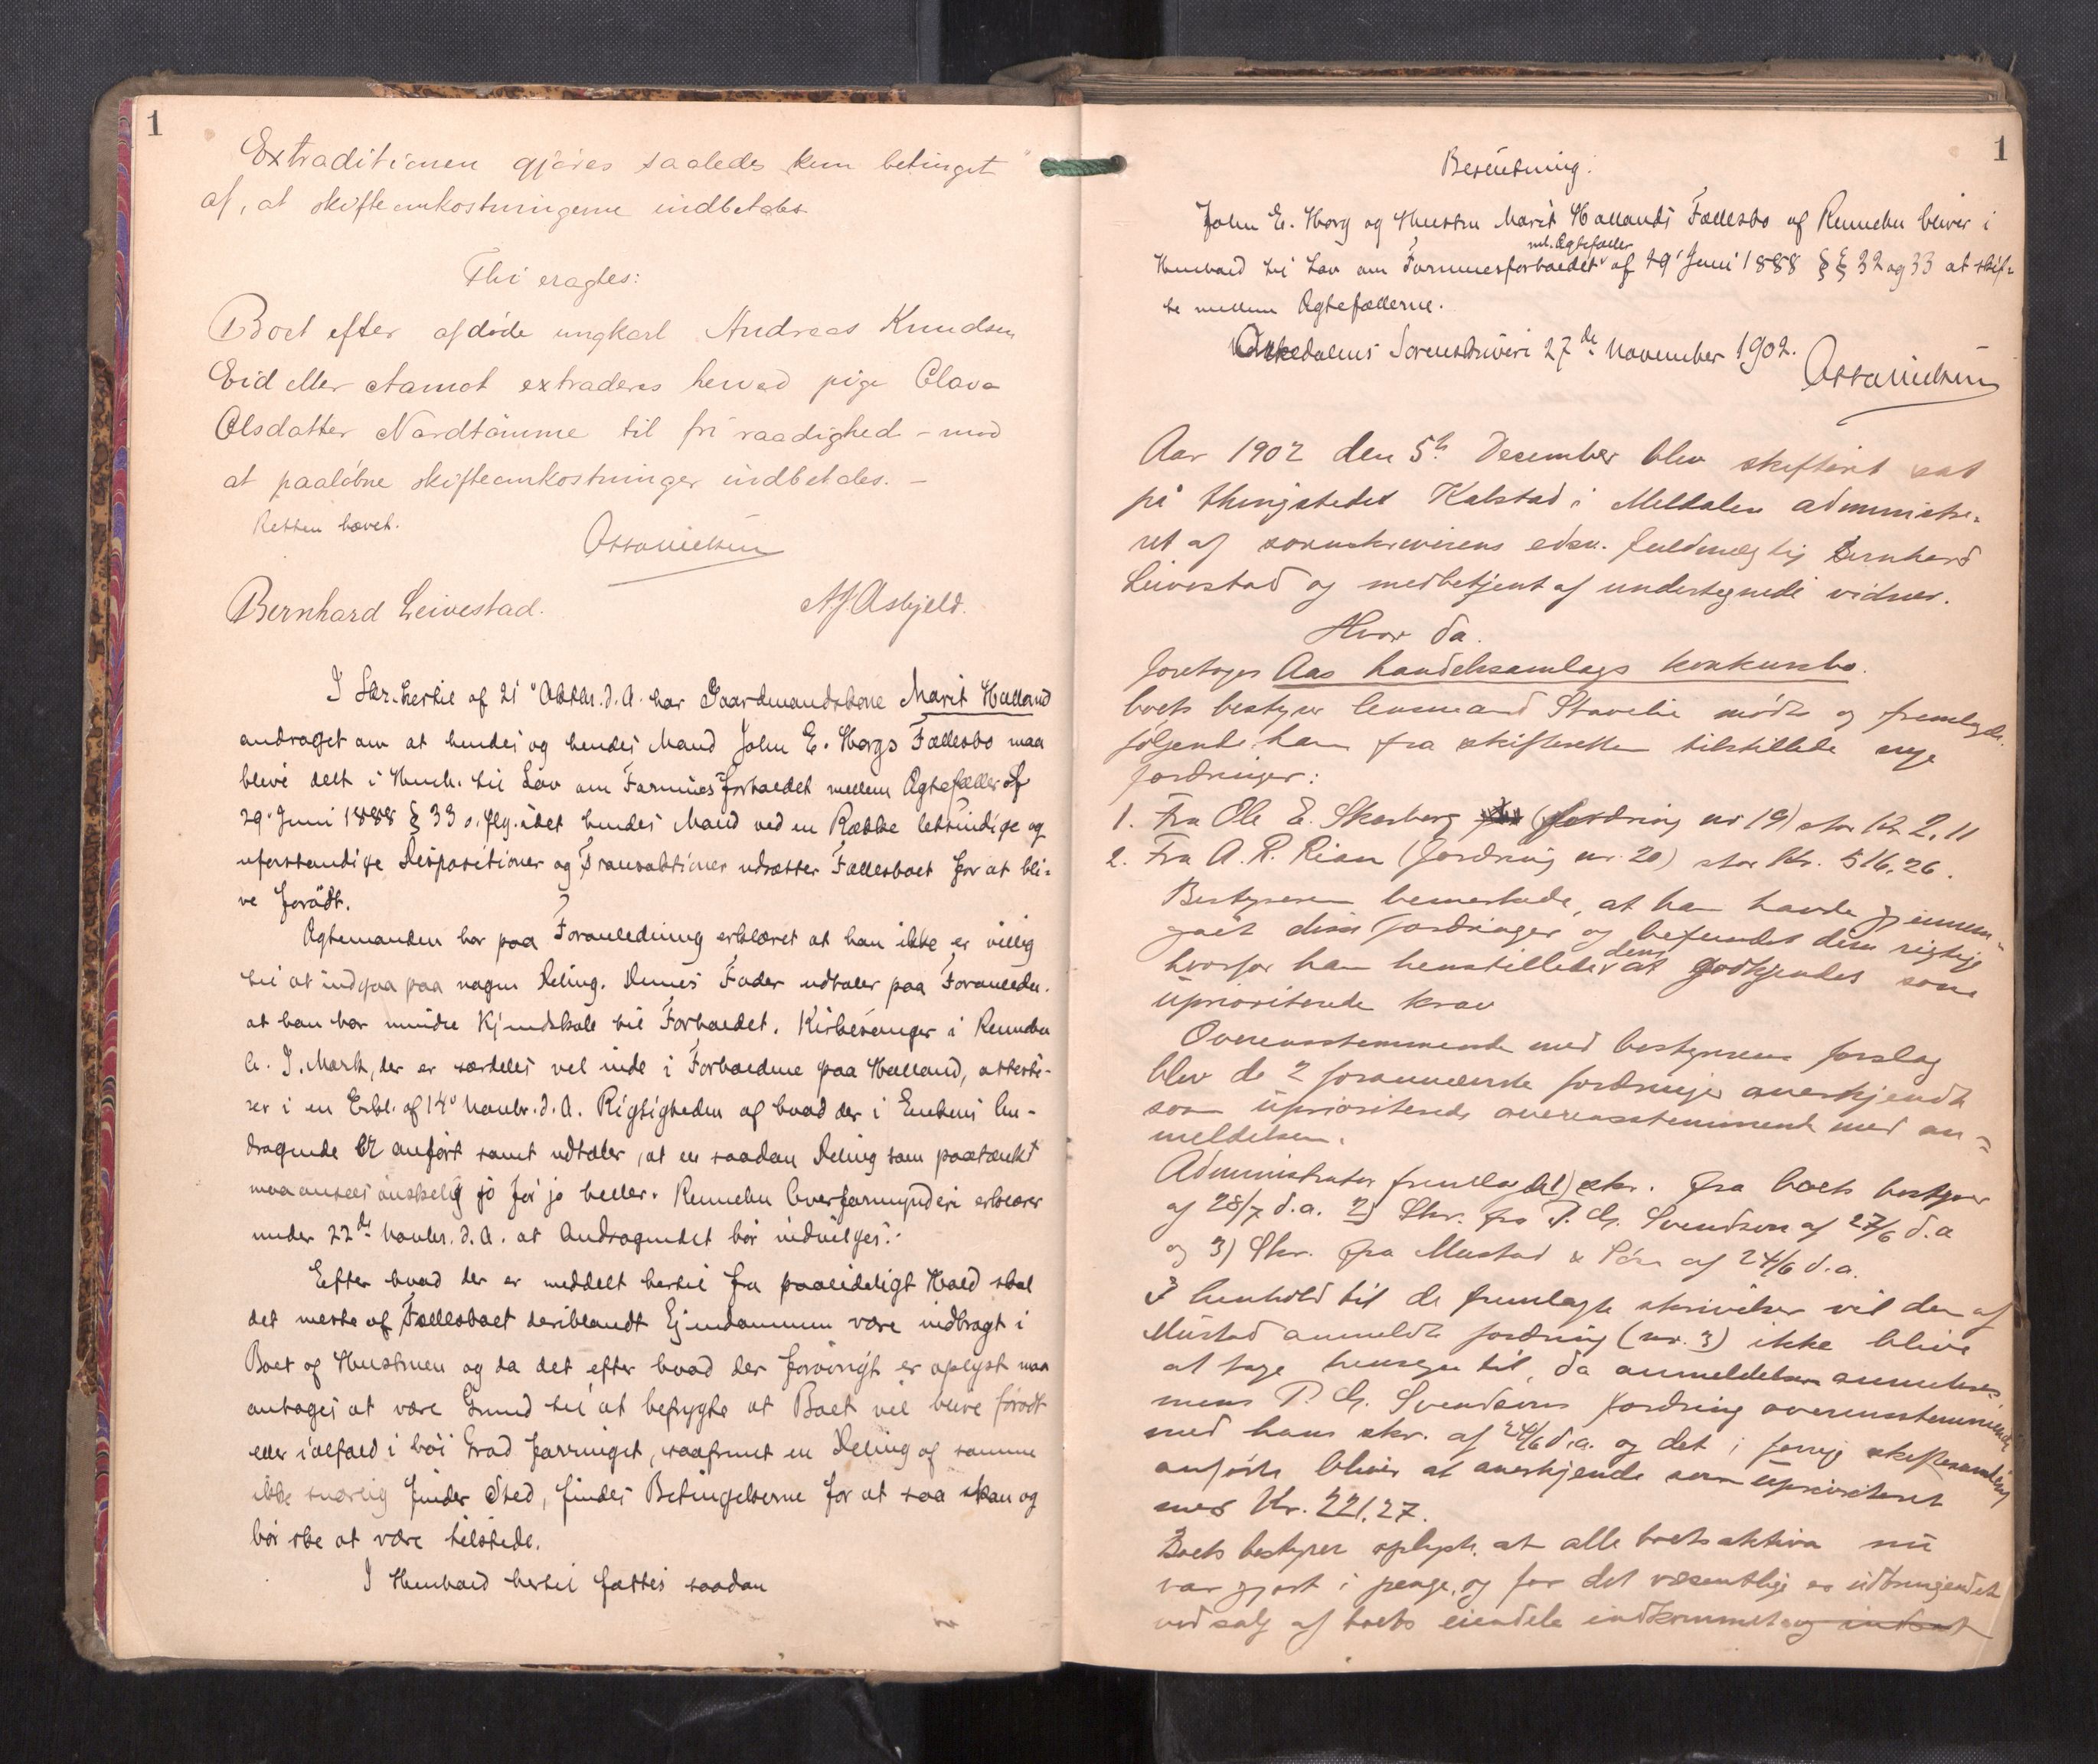 1
Extraditionen gjøres saaledes kun betinget
af, at skifteomkostningerne indbetales
Thi eragtes:
Boet efter afdøde ungkarl Andreas Knudsen
Eid eller Aamot extraderes herved pige Olava
Olsdatter Nordtømme til fri raadighed - mod
at paaløbne skifteomkostninger indbetales. -
Retten hævet.
Bernhard Leivestad.
I Skr. hertil af 21' Oktbr. d. A. har Gaardmandskone Marit Halland
andraget om at hendes og hendes Mand John E. Horgs Fællesbo maa
blive delt i Henh. til Lov om Formuesforholdet mellem Ægtefæller af
29' Juni 1888 § 33 o. flg. idet hendes Mand ved en Række letsindige og
uforstandige Dispositioner og Transaktioner udsætter Fællesboet for at bli-
ve forødt.
Ægtemanden har paa Foranledning erklæret at han ikke er villig
til at indgaa paa nogen Deling. Dennes Fader udtaler paa Foranledn.
at han har mindre Kjendskab til Forholdet. Kirkesanger i Rennebu
I. Mærk, der er særdeles vel inde i Forholdene paa Halland, atteste-
rer i en Erkl. af 14' Novbr. d. A. Rigtigheden af hvad der i Enkens An-
dragende er anført samt udtaler, at en saadan Deling som paatænkt
maa ansees ønskelig jo før jo heller. Rennebu Overformynderi erklærer
under 22de Novbr. d. A. at Andragendet bør indvilges.
Efter hvad der er meddelt hertil fra paalideligt Hold skal
det meste af Fællesboet deriblandt Ejendommen være indbragt i
Boet af Hustruen og da det efter hvad der forøvrigt er oplyst maa
antages at være Grund til at befrygte at Boet vil blive forødt
eller ialfald i høi Grad forringet, saafremt en Deling af samme
ikke snarlig finder Sted, findes Betingelserne for at saa kan og
bør ske at være tilstede.
I Henhold hertil fattes saadan
1
Beslutning:
John E. Horg og Hustru Marit Hallands Fællesbo af Rennebu bliver i
Henhold til Lov om Formuesforholdet ml. Ægtefæller af 29' Juni 1888 §§ 32 og 33 at skif-
te mellem Ægtefællerne.
Orkedalens Sorenskriveri 27de November 1902.
Aar 1902 den 5te December blev skifteret sat
på thingstedet Kalstad i Meldalen administre-
ret af sorenskriverens edsv. fuldmægtig Bernhard
Leivestad og medbetjent af undertegnede vidner.
Hvor da.
foretoges Aas handelssamlags konkursbo.
boets bestyrer lensmand Stavelie mødte og fremlagde
følgende ham fra skifteretten tilstillede nye
fordringer:
1. Fra Ole E. Skarberg (fordring nr 19) stor kr 2,11
2. Fra A. R. Rian (fordring nr. 20) stor Kr. 516,26.
Bestyreren bemerkede, at han havde gjennem-
gået disse fordringer og befundet dem rigtige
hvorfor han henstillede dem at godkjendes som
uprioriterede krav
Overensstemmende med bestyrerens forslag
blev de 2 forannævnte fordringer anerkjendt
som uprioriterede overensstemmende med an-
meldelsen.
Administrator fremlagde 1) skr. fra boets bestyrer
af 28/7 d.a. 2) Skr. fra P. G. Svendsen af 27/6 d.a
og 3) Skr. fra Mustad & Søn af 24/6 d.a.
I henhold til de fremlagte skrivelser vil den af
Mustad anmeldte fordring (nr. 3) ikke blive
at tage hensyn til, da anmeldelsen annulleres,
mens P. G. Svendsens fordring overensstemmende
med hans skr. af 24/6 d.a. og det i forrige skiftesamling
anførte bliver at anerkjende som uprioriteret
med Kr. 221,27.
Boets bestyrer oplyste, at alle boets aktiva nu
var gjort i penge, og for det væsentlige er udbringendet
ved salg af boets eiendele indkommet og